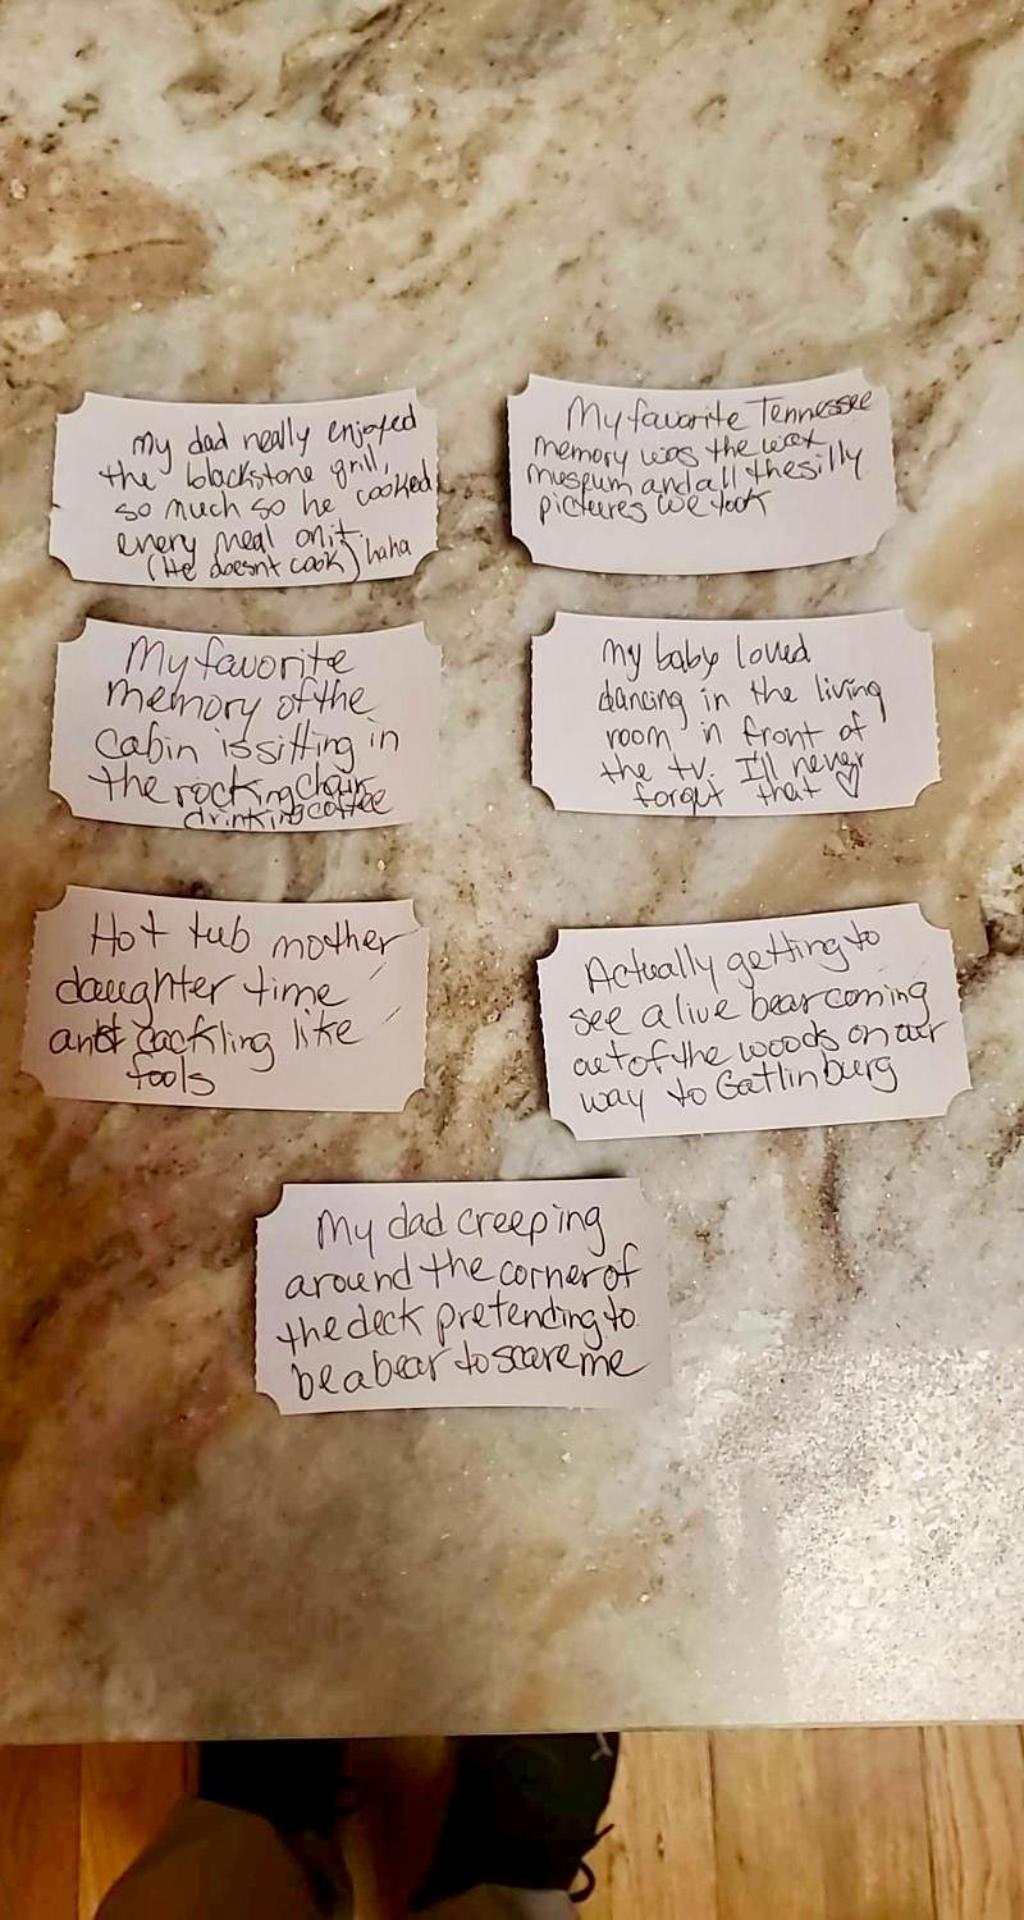 my dad really enjoyed
the blackstone grill,
so much so he cooked
every meal on it.
(He doesnt cook) haha
My favorite Tennessee
memory was the wax
museum and all the silly
pictures we took
My favorite
memory of the
cabin is sitting in
the rocking chair
drinking coffee
my baby loved
dancing in the living
room in front of
the tv. I'll never
forget that ♡
Hot tub mother
daughter time
and cackling like
fools
Actually getting to
see a live bear coming
out of the woods on our
way to Gatlinburg
My dad creeping
around the corner of
the deck pretending to
be a bear to scare me